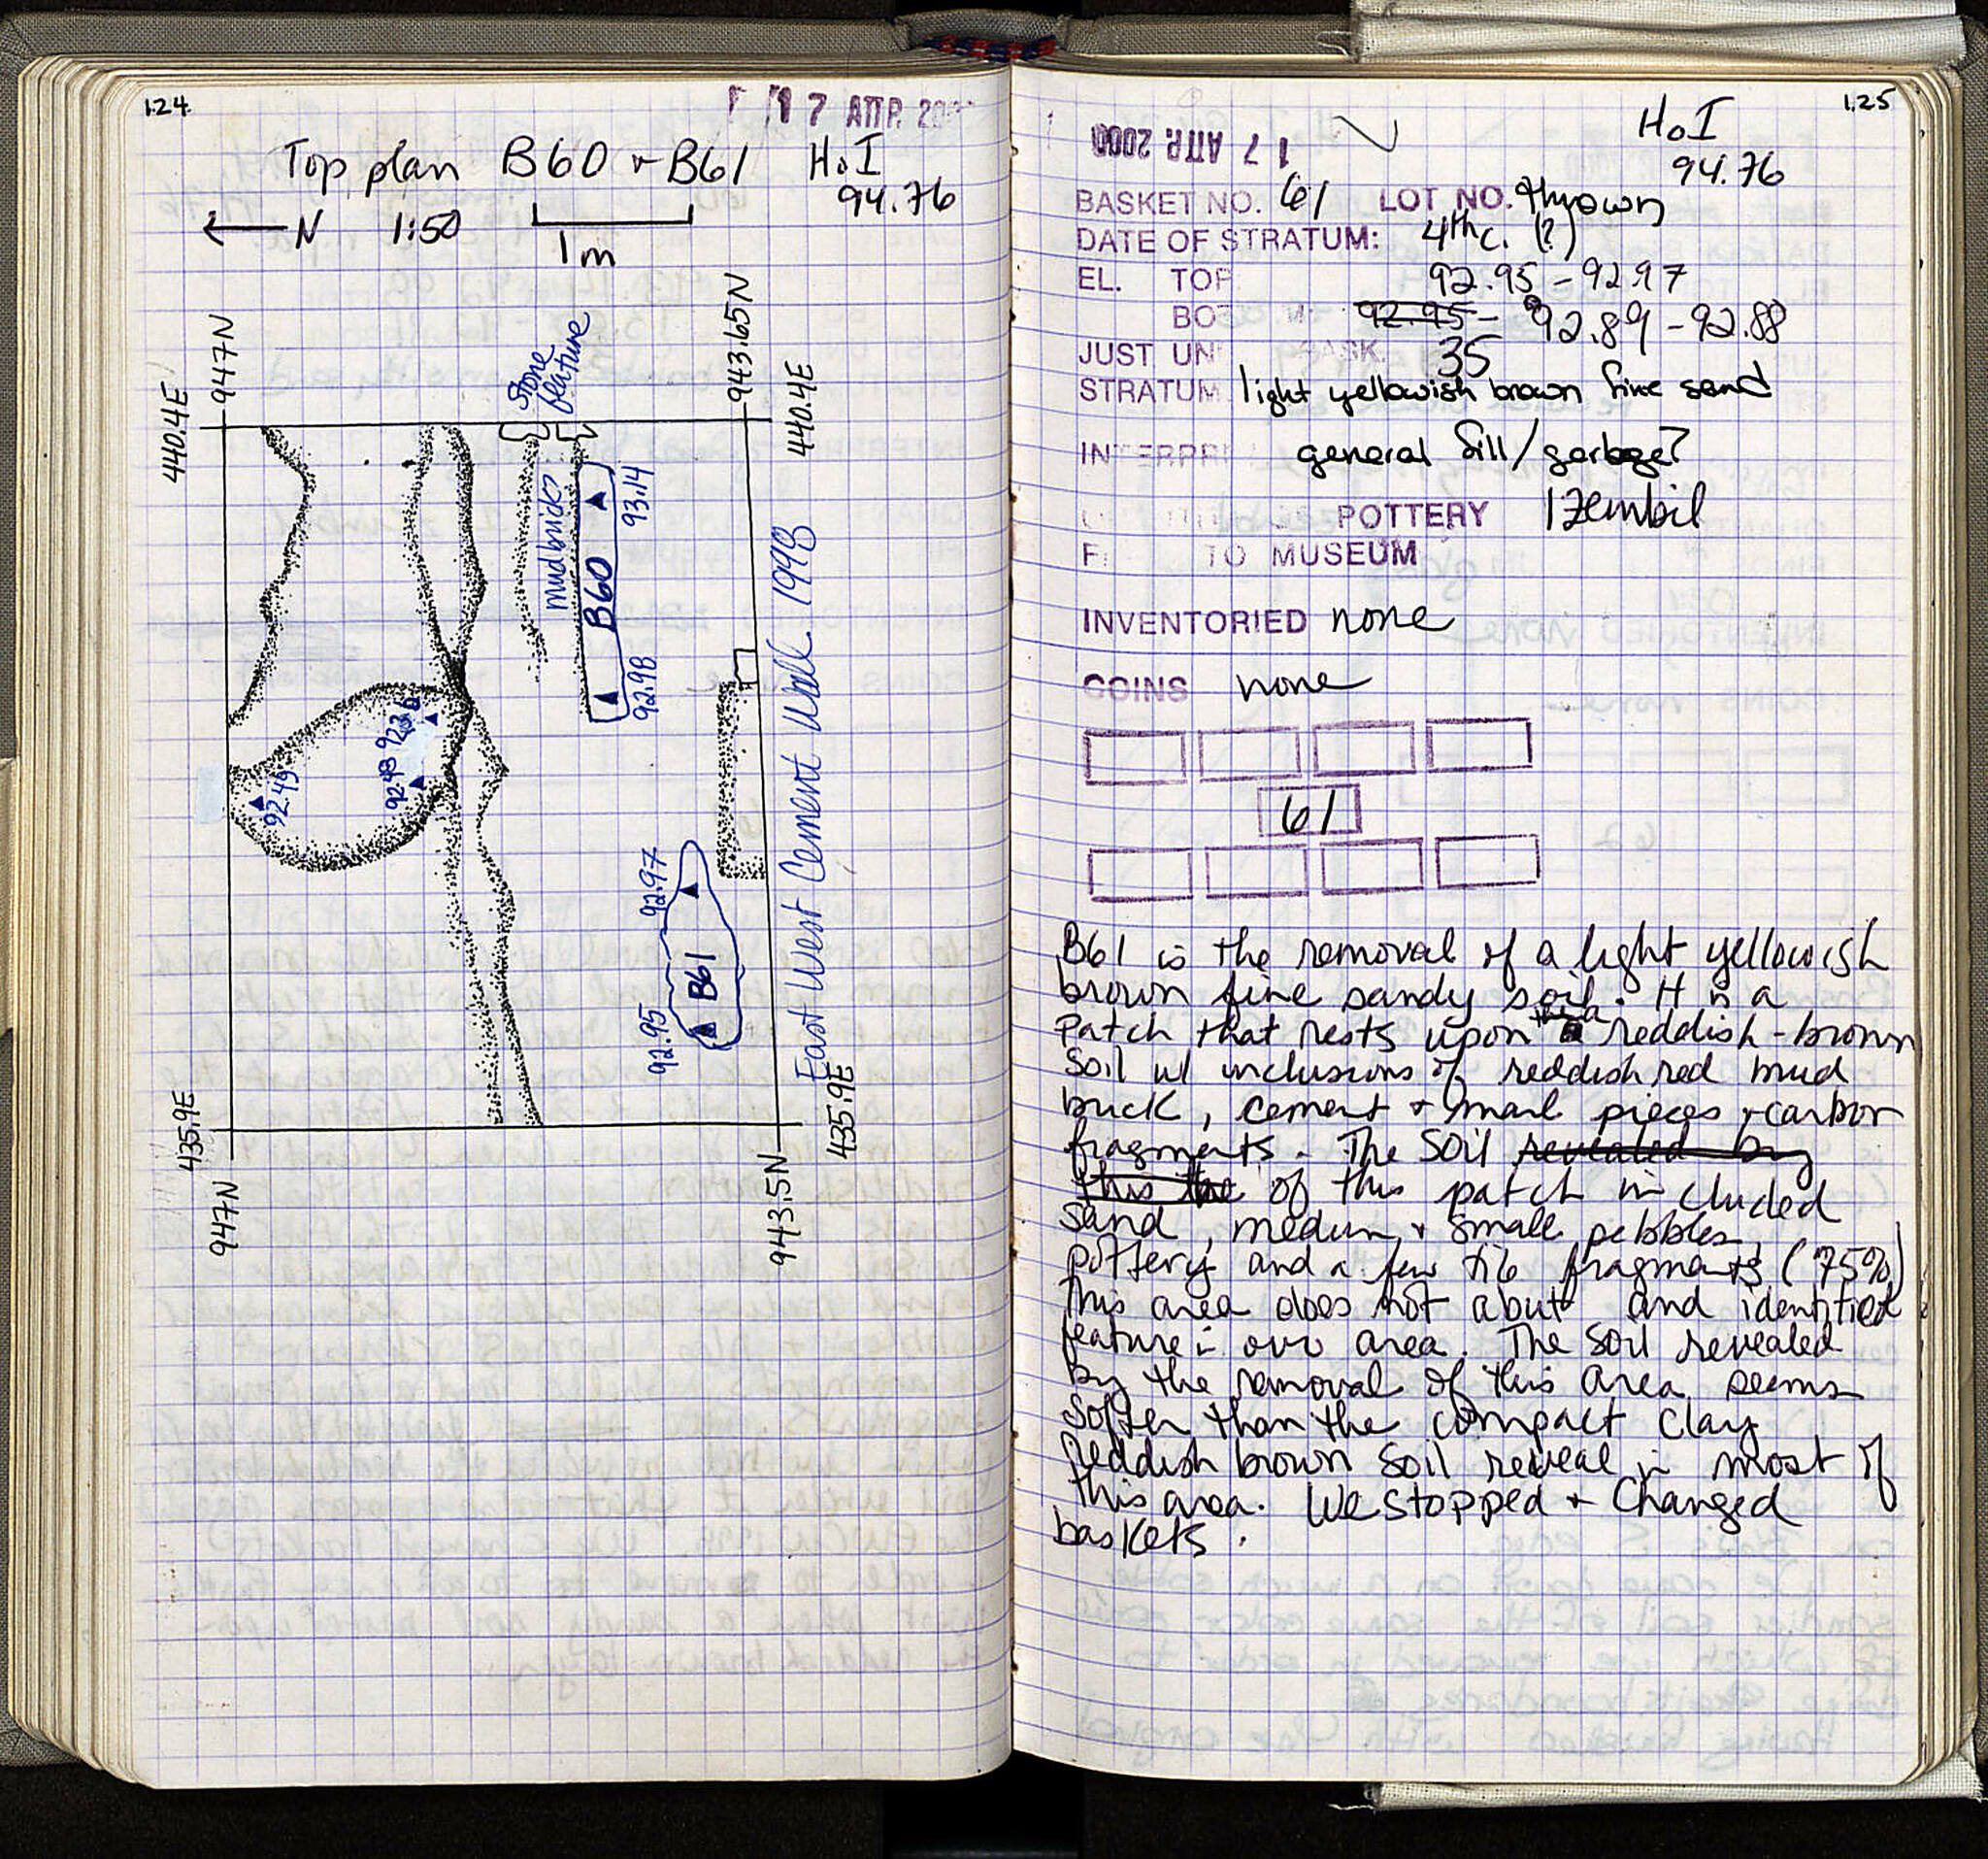 124
17 ΑΠΡ. 20
Top plan B60 + B61 HoI
94.76
N 1:50
1m
440.4E
947N
stone
feature
943.65N
440.4E
mudbricks
B60
93.14
92.98
92.49
92.48
East West Cement Wall 1998
92.97
B61
92.95
435.9E
947N
943.5N
435.9E
125
HoI
94.76
17 ΑΠΡ. 2000
BASKET NO. 61 LOT NO. thrown
DATE OF STRATUM: 4th c. (?)
EL. TOP 92.95 - 92.97
BOT M: 92.95 - 92.89 - 92.88
JUST UN BASK. 35
STRATUM light yellowish brown fine sand
INTERPR general fill/garbage?
POTTERY 1 zembil
F TO MUSEUM
INVENTORIED none
COINS none
61
B61 is the removal of a light yellowish
brown fine sandy soil. It is a
patch that rests upon the a reddish-brown
soil w/ inclusions of reddish red mud
brick, cement + small pieces + carbon
fragments. The soil revealed by
this the of this patch included
sand, medium + small pebbles,
pottery and a few tile fragments (75%)
this area does not abut and identified
feature in our area. The soil revealed
by the removal of this area seems
softer than the compact clay
reddish brown soil reveal in most of
this area. We stopped + changed
baskets.